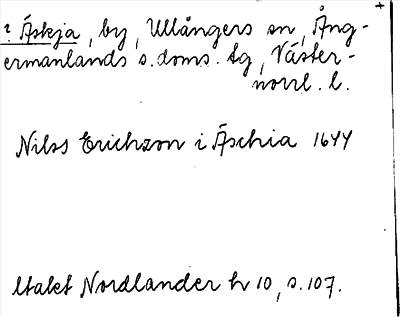 ? Äskja, by, Ullångers sn, Ång-
ermanlands s. doms. tg, Väster-
norrl. l.
Nilss Erichzon i Äschia 1644
Utalet Nordlander h 10, s. 107.